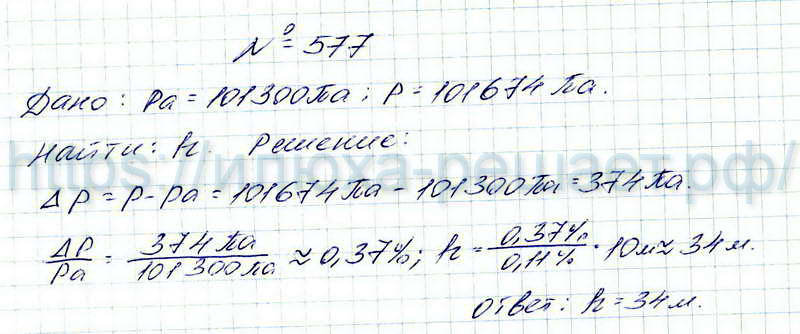 № 577
Дано: Pa = 101300 Па; P = 101674 Па.
Найти: h. Решение:
https://ипоха-решает.рф/
ΔP = P - Pa = 101674 Па - 101300 Па = 374 Па.
ΔP/Pa = 374 Па/101300 Па ≈ 0,37%; h = 0,37%/0,11% · 10м ≈ 34 м.
Ответ: h = 34 м.